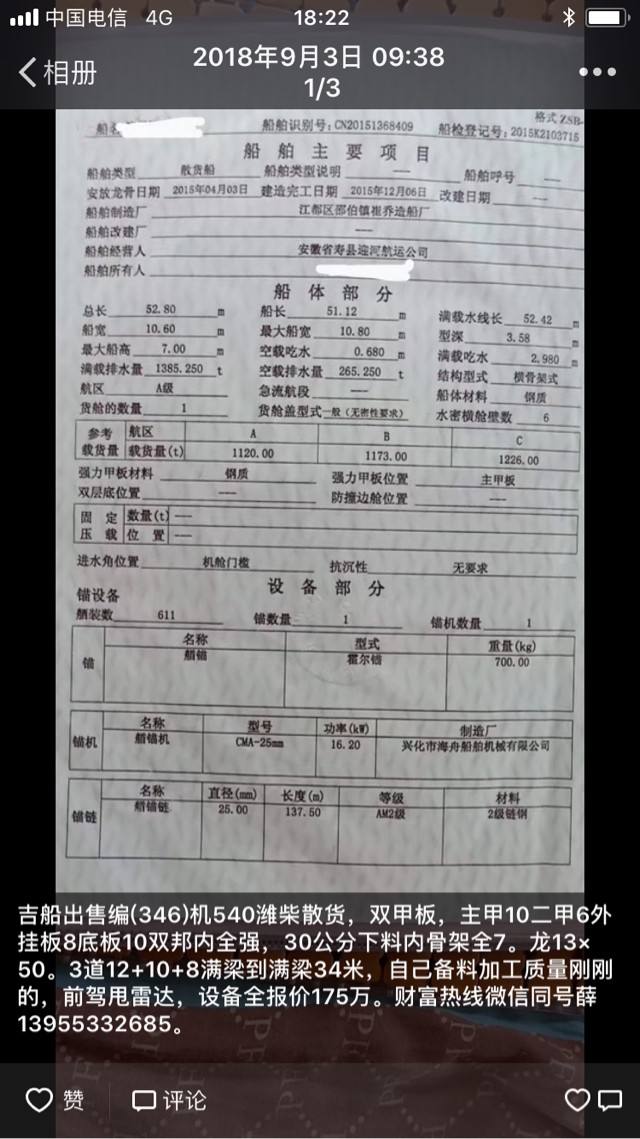 中国电信 4G 18:22
相册 2018年9月3日 09:38
1/3
格式 ZSB-
船名 船舶识别号：CN20151368409 船检登记号：2015K2103715
船舶主要项目
船舶类型 散货船 船舶类型说明 — 船舶呼号 —
安放龙骨日期 2015年04月03日 建造完工日期 2015年12月06日 改建日期 —
船舶制造厂 江都区邵伯镇崔乔造船厂
船舶改建厂 —
船舶经营人 安徽省寿县迎河航运公司
船舶所有人
船体部分
总长 52.80 m 船长 51.12 m 满载水线长 52.42 m
船宽 10.60 m 最大船宽 10.80 m 型深 3.58 m
最大船高 7.00 m 空载吃水 0.680 m 满载吃水 2.980 m
满载排水量 1385.250 t 空载排水量 265.250 t 结构型式 横骨架式
航区 A级 急流航段 — 船体材料 钢质
货舱的数量 1 货舱盖型式 一般（无密性要求） 水密横舱壁数 6
参考 航区 A B C
载货量 载货量(t) 1120.00 1173.00 1226.00
强力甲板材料 钢质 强力甲板位置 主甲板
双层底位置 — 防撞边舱位置 —
固定 数量(t) —
压载 位置 —
进水角位置 机舱门槛 抗沉性 无要求
设备部分
锚设备
舾装数 611 锚数量 1 锚机数量 1
名称 型式 重量(kg)
锚 艏锚 霍尔锚 700.00
名称 型号 功率(kW) 制造厂
锚机 艏锚机 CMA-25mm 16.20 兴化市海舟船舶机械有限公司
名称 直径(mm) 长度(m) 等级 材料
锚链 艏锚链 25.00 137.50 AM2级 2级链钢
吉船出售编(346)机540潍柴散货，双甲板，主甲10二甲6外
挂板8底板10双邦内全强，30公分下料内骨架全7。龙13×
50。3道12+10+8满梁到满梁34米，自己备料加工质量刚刚
的，前驾甩雷达，设备全报价175万。财富热线微信同号薛
13955332685。
赞 评论